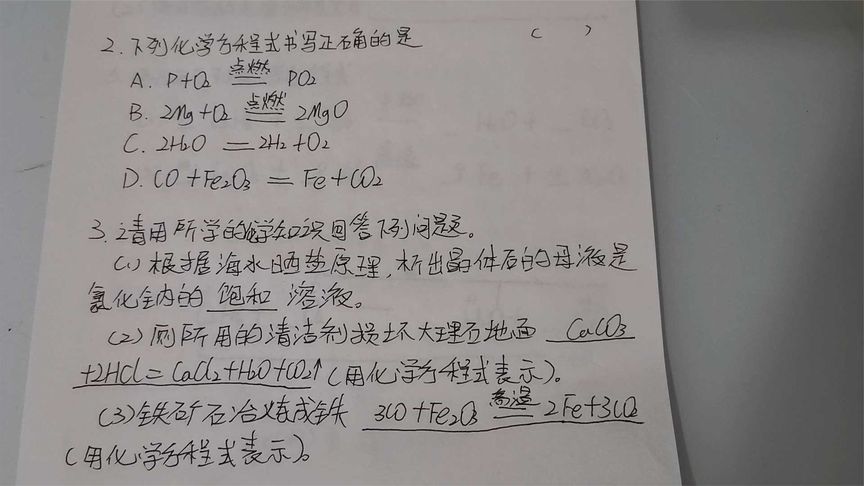 2.下列化学方程式书写正确的是 ( )
A. P+O₂ 点燃═ PO₂
B. 2Mg+O₂ 点燃═ 2MgO
C. 2H₂O ═ 2H₂+O₂
D. CO+Fe₂O₃ ═ Fe+CO₂
3.请用所学的化学知识回答下列问题。
(1)根据海水晒盐原理,析出晶体后的母液是
氯化钠的 饱和 溶液。
(2)厕所用的清洁剂损坏大理石地面 CaCO₃
+2HCl=CaCl₂+H₂O+CO₂↑(用化学方程式表示)。
(3)铁矿石冶炼成铁 3CO+Fe₂O₃ 高温═ 2Fe+3CO₂
(用化学方程式表示)。